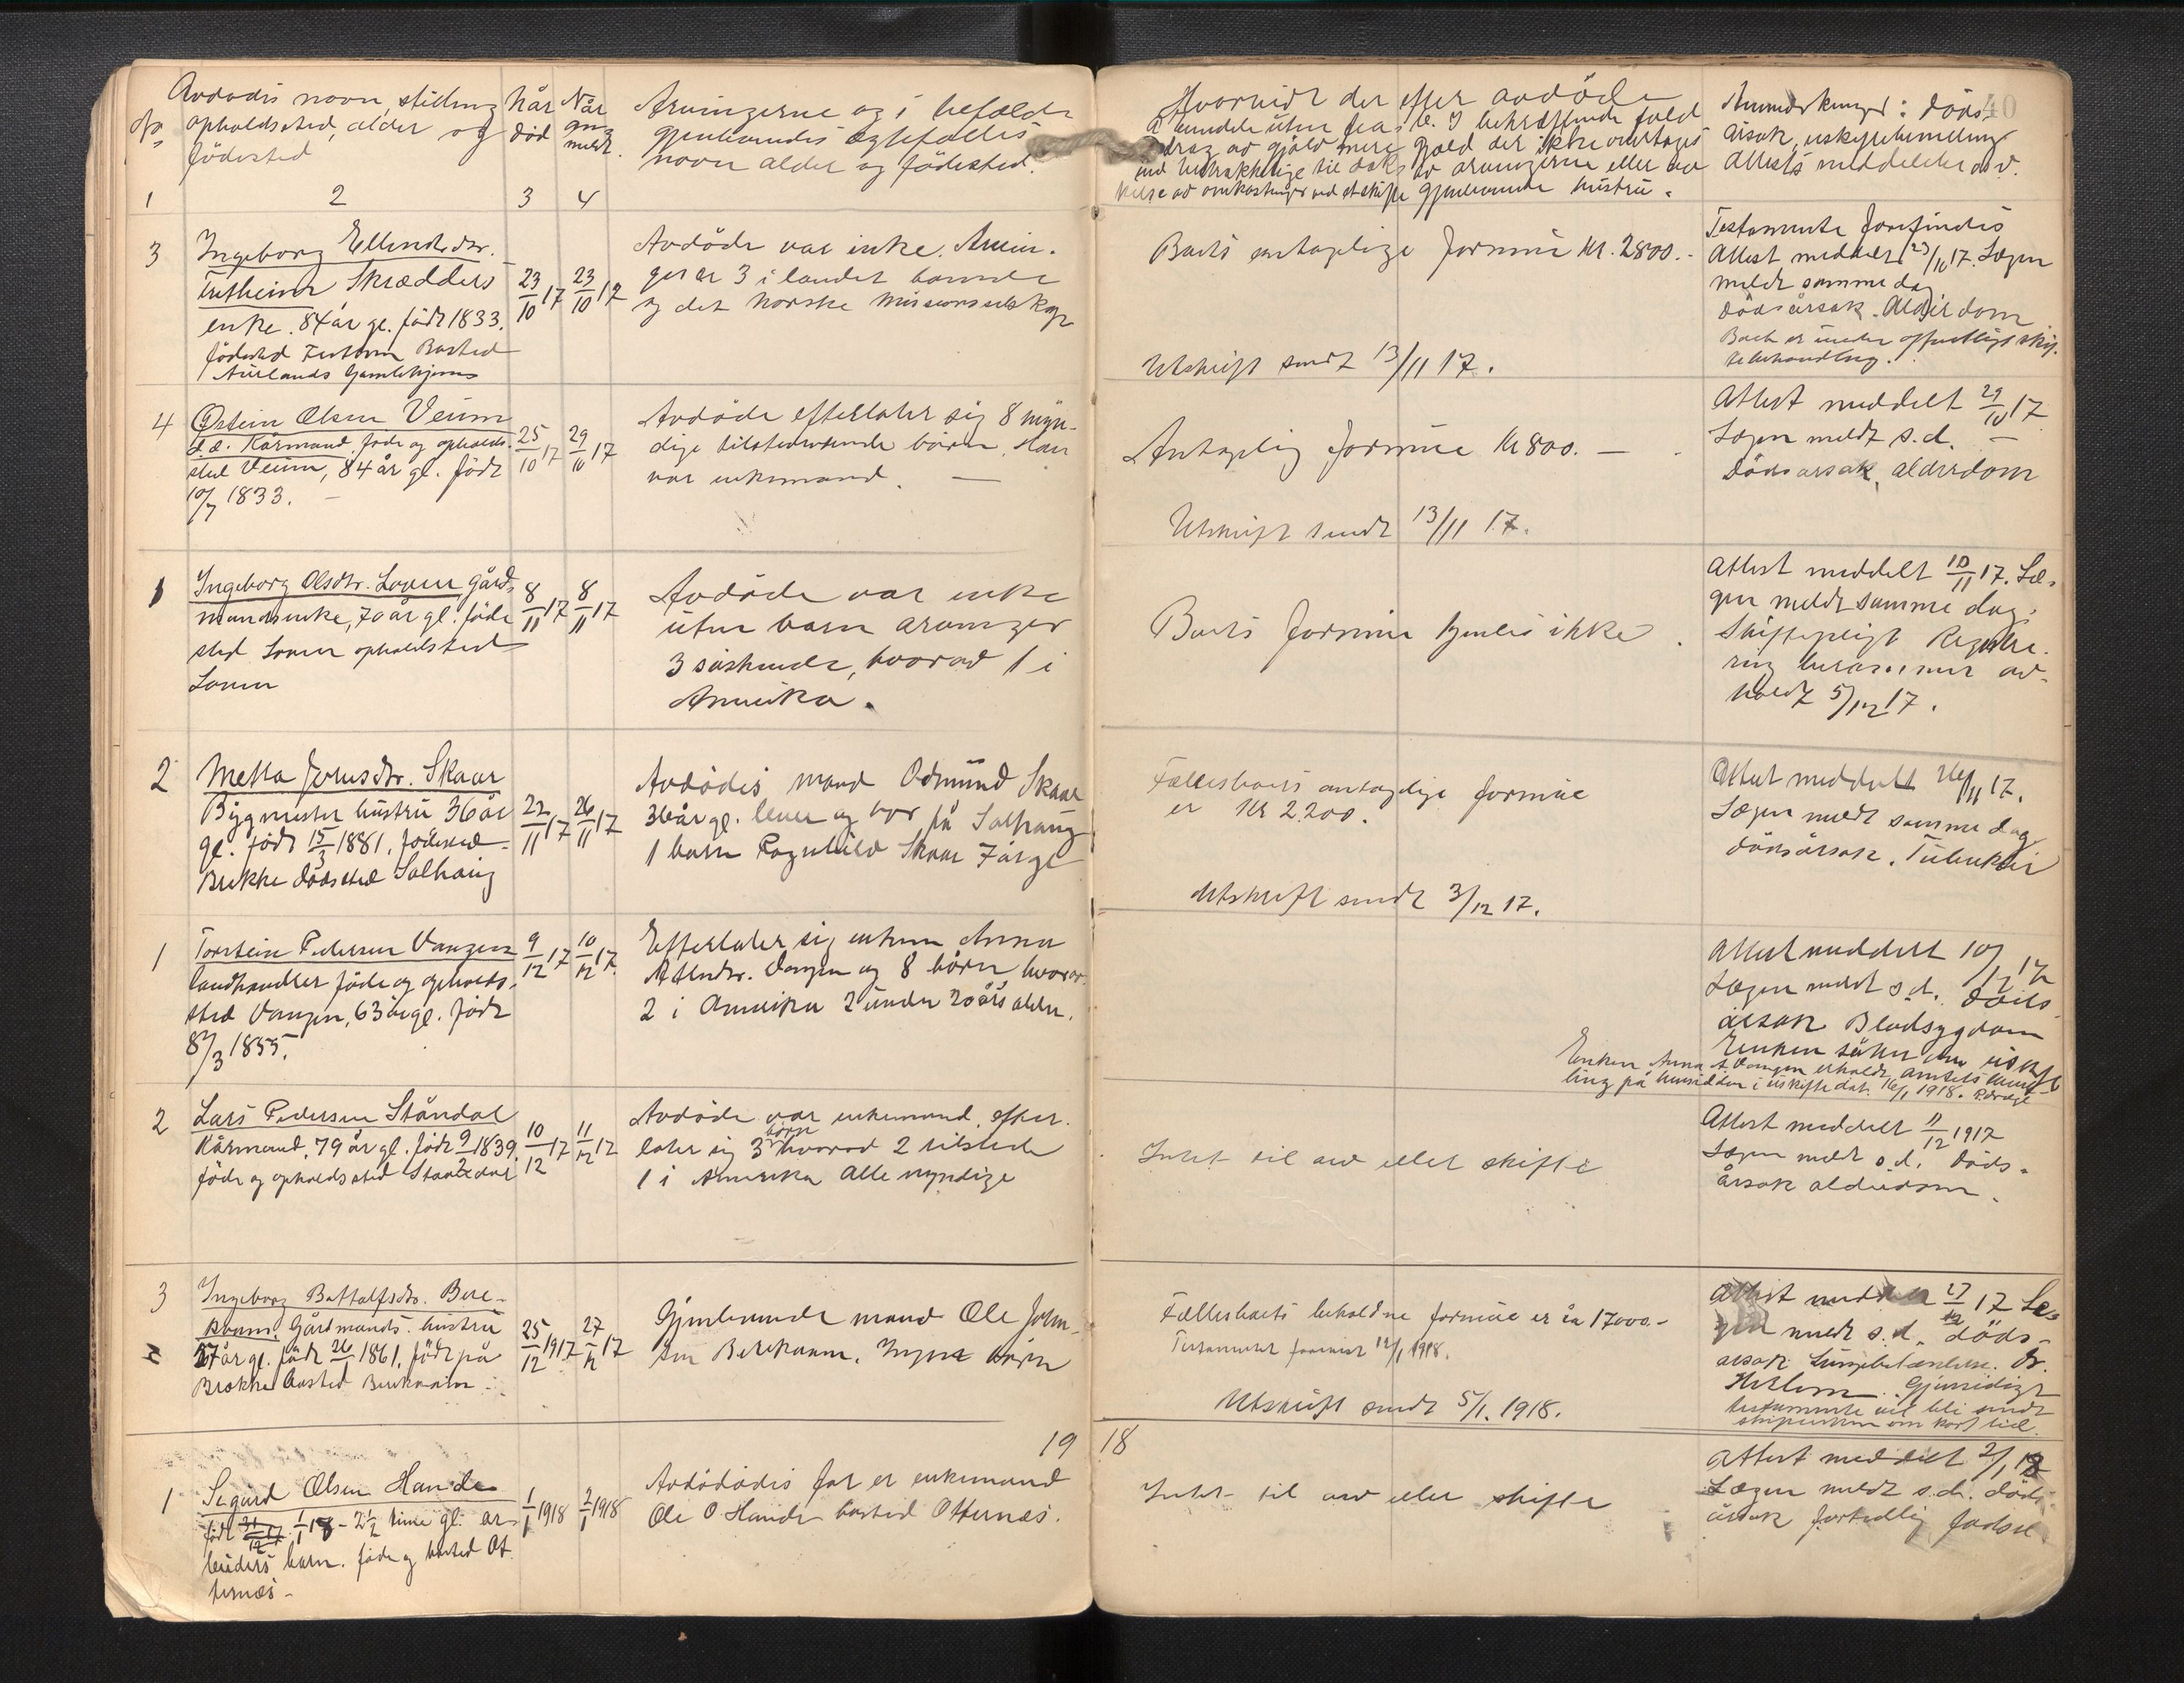 No
Avdødes navn, stilling
opholdssted, alder og
födested
når
död
Når
meldt.
Arvingerne og i tilfælde
gjenlevendes ægtefælles
navn alder og födested.
Hvorvidt der efter avdöde
Anmerkninger: döds-
40
årsak, uskiftebevilling
attests meddelelse o.s.v.
1
2
3
4
3
Ingeborg Ellendsdtr.
Fretheim Skrædders
enke. 84 år gl. födt 1833.
födested Fretheim Bosted
Aurlands Gamlehjem
23/10 17
23/10 17
Avdöde var enke. Arvin-
ger er 3 i landet boende
og det Norske Missionsselskap
Boets antagelige formue Kr. 2800.-
Utskrift sendt 13/11 17.
Testamente forefindes
Attest meddelt 23/10 17. Lægen
meldt samme dag
Dödsårsak. Alderdom
Boet er under offentligt skif-
tebehandling.
4
Østein Olsen Veum
f.d. Kårmand, föde og opholds-
sted Veum, 84 år gl. födt
10/7 1833. -
25/10 17
29/10 17
Avdöde efterlater sig 8 myn-
dige tilstedeværende börn. Han
var enkemand. —
Antagelig formue Kr 800. —
Utskrift sendt 13/11 17.
Attest meddelt 29/10 17
Lægen meldt s.d. —
Dödsarsak, alderdom
1
Ingeborg Olsdtr. Loven gård-
mandsenke, 70 år gl. föde
sted Loven opholdsted
Loven
8/11 17
8/11 17
Avdöde var enke
uten barn arvinger
3 söskende, hvorav 1 i
Amerika.
Boets formue kjendes ikke.
Attest meddelt 10/11 17. Læ-
gen meldt samme dag.
Skiftepligt Registre-
ring av-
holdt 5/12 17.
2
Metta Jensdtr. Skaar
Bygmester hustru 36 år
gl. födt 15/3 1881, födested
Brekke dödssted Solhaug
22/11 17
26/11 17
Avdödes mand Odmund Skaar
36 år gl. lever og bor på Solhaug
1 barn Ragnhild Skaar 7 år gl
Fællesboets antagelige formue
er Kr 2.200.
Utskrift sendt 3/12 17.
Attest meddelt 26/11 17.
Lægen meldt samme dag
dödsårsak. Tuberkler
1
Torstein Pedersen Vangen
landhandler föde og opholds-
sted Vangen, 63 år gl. födt
8/3 1855.
9/12 17
10/12 17
Efterlater sig enken Anna
Vangen og 8 börn hvorav
2 i Amerika 2 under 20 års alder.
Attest meddelt 10/12 17
Lægen meldt s.d. döds
årsak Blodsygdom
Enken söker om uskifte
Enken Anna A. Vangen erholdt amtets bevil-
ling på hensidden i uskifte dat. 16/1 1918.
2
Lars Pedersen Stöndal
Kårmand, 79 år gl. födt 9/2 1839
föde og opholdssted Stöndal
10/12 17
11/12 17
Avdöde var enkemand, efter-
later sig 3 börn hvorav 2 tilstede
1 i Amerika Alle myndige
Intet til arv eller skifte
Attest meddelt 11/12 1917
Lægen meldt s.d. Döds-
årsak alderdom.
3
Ingeborg Bottolfsdtr. Bere-
kvam. Gårdmands hustru
57 år gl. födt 26/1 1861. födt på
Brekke bosted Berekvam -
25/12 1917
27/12 17
Gjenlevende mand Ole John-
sen Berekvam. Ingen börn
Fællesboets beholdne formue er ca 17000.-
Testamentet forevist 12/1 1918.
Utskrift sendt 5/1. 1918.
Attest meddelt 27/12 17 Læ-
gen meldt s.d. döds-
arsak Lungebetændelse. Dr.
Gjensidigt
testamente vil bli sendt
om kort tid.
19
18
1
Sigurd Olsen Hande
födt 1/1 18 - 2 1/2 time gl. ar-
beiders barn. föde og bosted Ot
ternæs -
1/1 1918
2/1 1918
Avdödödes far er enkemand
Ole O Hande bosted Otternæs.
Intet til arv eller skifte
Attest meddelt 2/1 18
Lægen meldt s.d. döds
årsak fortidlig födsel